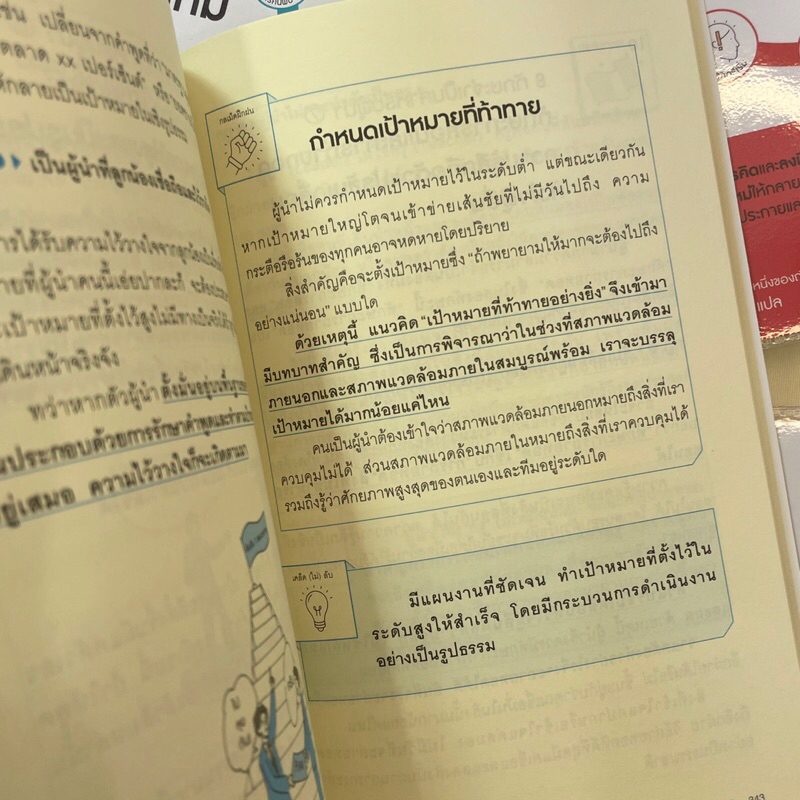 เปลี่ยนจากคำพูดที่ว่า
ตลาด xx เปอร์เซ็นต์"
ให้กลายเป็นเป้าหมายในเชิงรูปธรรม
เป็นผู้นำที่ลูกน้องเชื่อถือและ
การได้รับความไว้วางใจจากลูกน้อง
ที่ผู้นำคนนี้เอ่ยปากละก็ จะต้อง
เป้าหมายที่ตั้งไว้สูงไม่มีทางเป็น
เดินหน้าจริงจัง
ทว่าหากตัวผู้นำตั้งมั่นอยู่บน
ประกอบด้วยการรักษาคำพูดและ
อยู่เสมอ ความไว้วางใจก็จะเกิดตามมา
กลเม็ดฝึกฝน
กำหนดเป้าหมายที่ท้าทาย
ผู้นำไม่ควรกำหนดเป้าหมายไว้ในระดับต่ำ แต่ขณะเดียวกัน
หากเป้าหมายใหญ่โตจนเข้าข่ายเส้นชัยที่ไม่มีวันไปถึง ความ
กระตือรือร้นของทุกคนอาจหดหายโดยปริยาย
สิ่งสำคัญคือจะตั้งเป้าหมายซึ่ง "ถ้าพยายามให้มากจะต้องไปถึง
อย่างแน่นอน" แบบใด
ด้วยเหตุนี้ แนวคิด "เป้าหมายที่ท้าทายอย่างยิ่ง" จึงเข้ามา
มีบทบาทสำคัญ ซึ่งเป็นการพิจารณาว่าในช่วงที่สภาพแวดล้อม
ภายนอกและสภาพแวดล้อมภายในสมบูรณ์พร้อม เราจะบรรลุ
เป้าหมายได้มากน้อยแค่ไหน
คนเป็นผู้นำต้องเข้าใจว่าสภาพแวดล้อมภายนอกหมายถึงสิ่งที่เรา
ควบคุมไม่ได้ ส่วนสภาพแวดล้อมภายในหมายถึงสิ่งที่เราควบคุมได้
รวมถึงรู้ว่าศักยภาพสูงสุดของตนเองและทีมอยู่ระดับใด
เคล็ด (ไม่) ลับ
มีแผนงานที่ชัดเจน ทำเป้าหมายที่ตั้งไว้ใน
ระดับสูงให้สำเร็จ โดยมีกระบวนการดำเนินงาน
อย่างเป็นรูปธรรม
243
คิดและลง
ให้กลาย
ประกายและ
หนึ่งของ
แปล